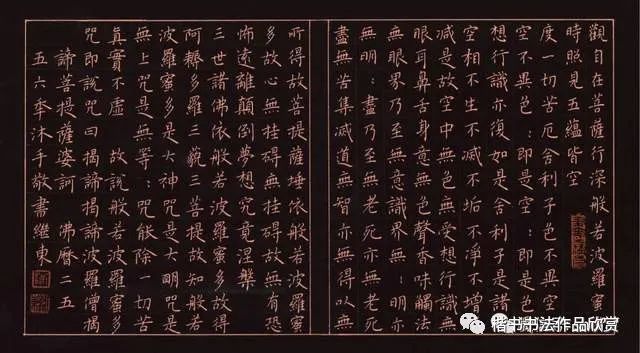 觀自在菩薩行深般若波羅蜜
時照見五蘊皆空
度一切苦厄舍利子色不異空
空不異色:即是空:即是色
想行識亦復如是舍利子是諸
空相不生不滅不垢不淨不增
減是故空中無色無受想行識
眼耳鼻舌身意無色聲香味觸法
無眼界乃至無意識界無:明亦
無明:盡乃至無老死亦無老死
盡無苦集滅道無智亦無得以無
所得故菩提薩埵依般若波羅蜜
多故心無挂礙無挂礙故無有恐
怖遠離顛倒夢想究竟涅槃
三世諸佛依般若波羅蜜多故得
阿耨多羅三藐三菩提故知般若
波羅蜜多是大神咒是大明咒是
無上咒是無等:咒能除一切苦
真實不虛 故說般若波羅蜜多
咒即說咒曰揭諦揭諦波羅僧揭
諦菩提薩婆訶 佛曆二五
五六年沐手敬書繼東
楷书书法作品欣赏